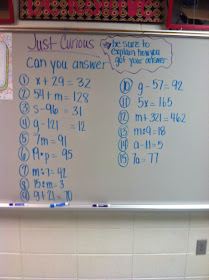 Just Curious
can you answer
be sure to
explain how you
got your answer
① x + 29 = 32
② 54 + m = 128
③ s - 96 = 31
④ g - 121 = 12
⑤ 7m = 91
⑥ 19 • p = 95
⑦ m ÷ 7 = 42
⑧ 15 ÷ m = 3
⑨ g + 21 = 70
⑩ g - 57 = 92
⑪ 5x = 165
⑫ m + 321 = 462
⑬ m ÷ 9 = 18
⑭ a - 11 = 5
⑮ 7a = 77